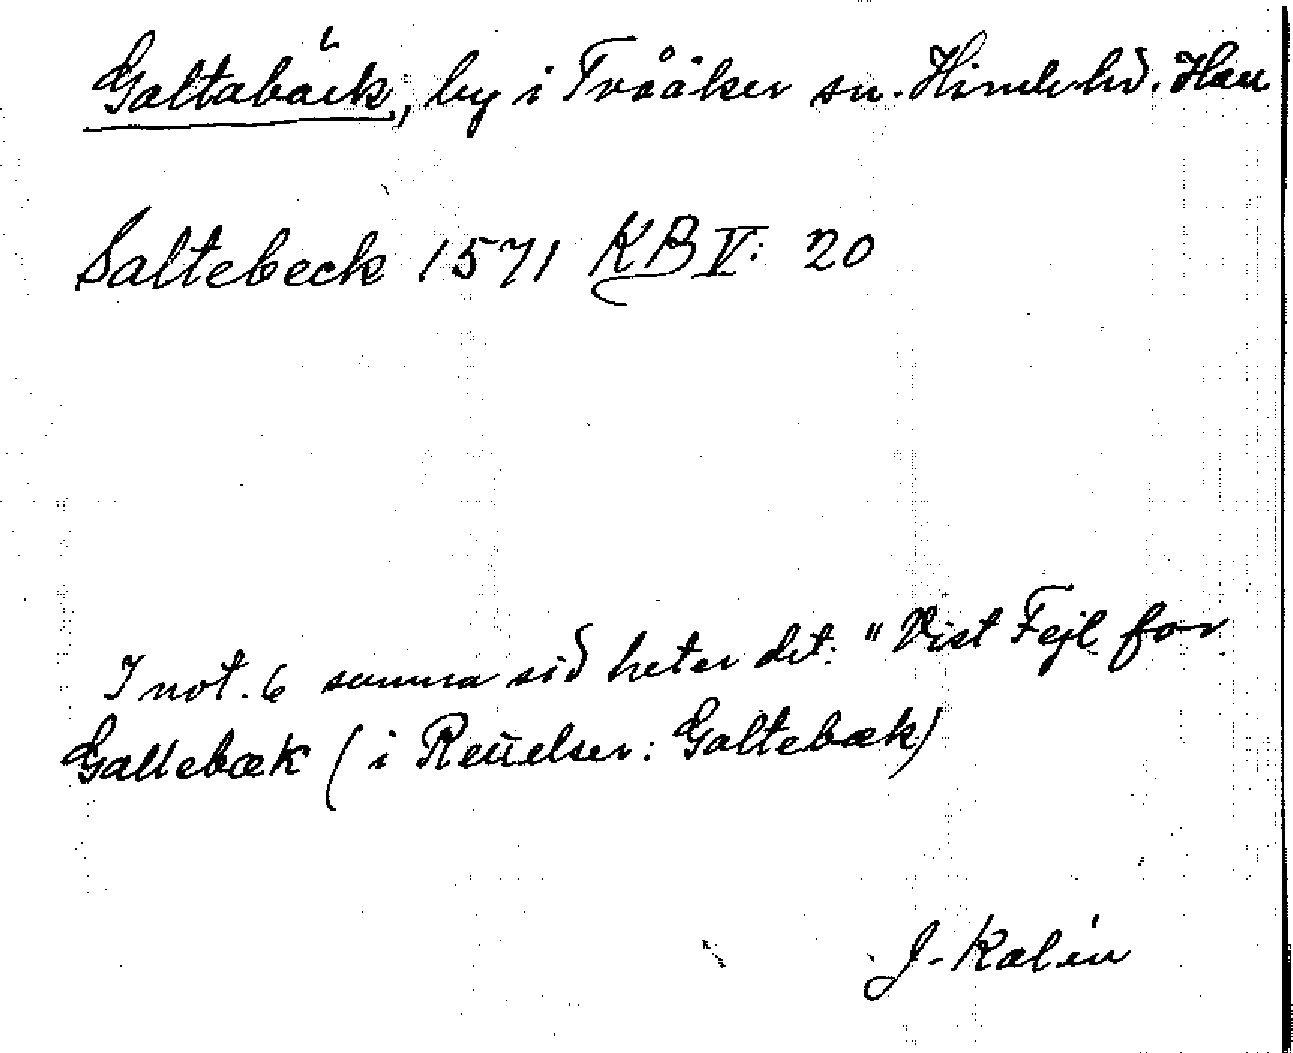 Galtabäck, by i Tvååker sn. Himle hd. Hall
Saltebeck 1571 KB V: 20
I not. 6 samma sid heter det: "Vist Fejl for
Galtebæk (i Rettelser: Galtebæk)
J. Kalén